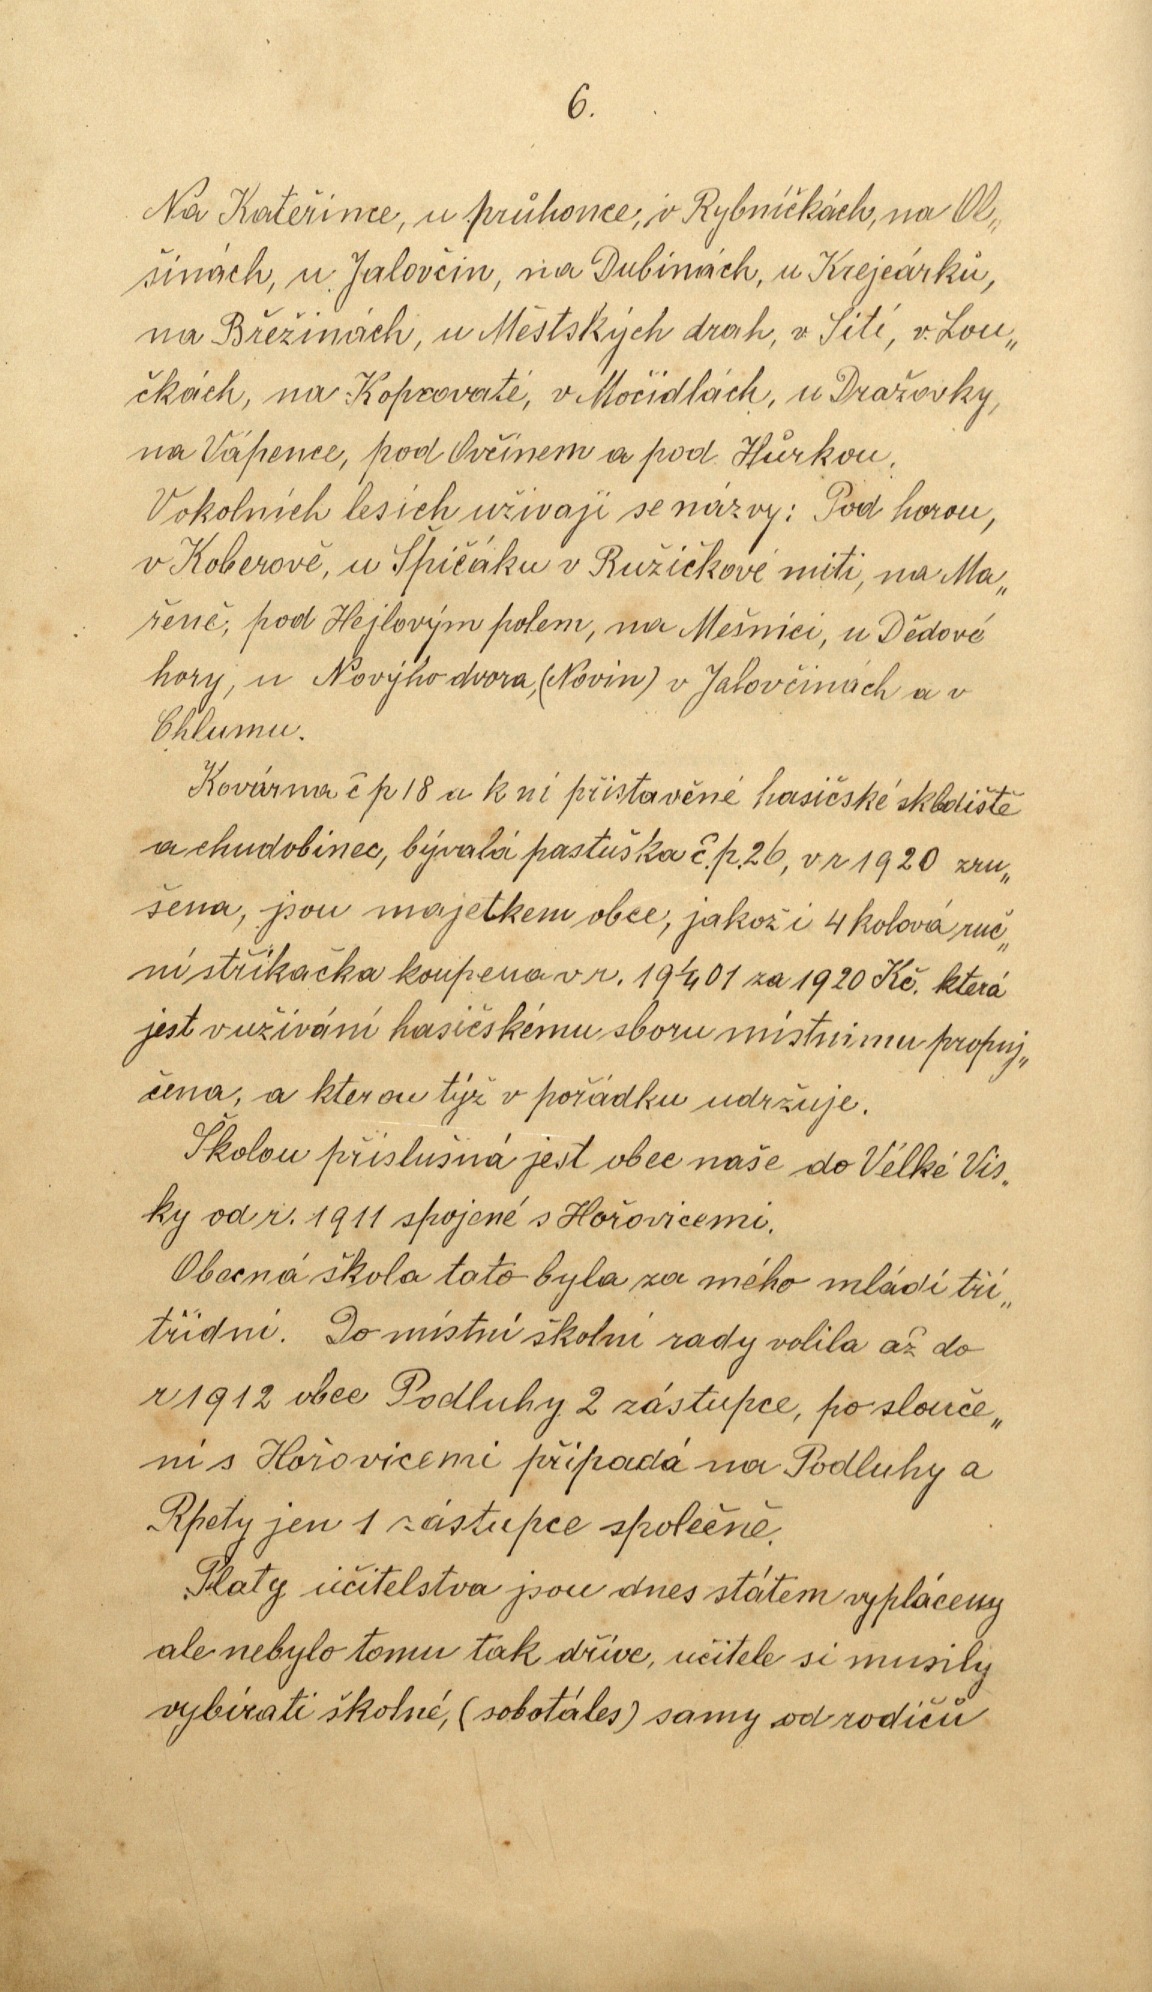 6.
Na Kateřince, u průhonce, v Rybníčkách, na Ol„
šinách, u Jalovčin, na Dubinách, u Krejcárků,
na Březinách, u Městských drah, v Sití, v Lou„
čkách, na Kopcovaté, v Močidlách, u Dražovky,
na Vápence, pod Ovčínem a pod Hůrkou.
V okolních lesích uživají se názvy: Pod horou,
v Koberově, u Špičáku v Ružičkové miti, na Ma„
řeně, pod Hejlovým polem, na Mešnici, u Dědové
hory, u Novýho dvora, (Novin) v Jalovčinách a v
Chlumu.
Kovárna č p 18 a k ní přistavěné hasičské skladiště
a chudobinec, bývalá pastuška č.p. 26, v r 1920 zru„
šena, jsou majetkem obce, jakož i 4 kolová ruč„
ní střikačka koupena v r. 19 01 za 1920 Kč. která
jest v užívání hasičskému sboru místnimu propuj„
čena, a kterou týž v pořádku udržuje.
Školou příslušná jest obec naše do Vélké Vis„
ky od r. 1911 spojené s Hořovicemi.
Obecná škola tato byla za mého mládí tří„
třídní. Do místní školní rady volila až do
r 1912 obec Podluhy 2 zástupce, po slouče„
ní s Hořovicemi připadá na Podluhy a
Rpety jen 1 zástupce společně.
Platy učitelstva jsou dnes státem vypláceny
ale nebylo tomu tak dříve, učitele si musily
vybírati školné, (sobotáles) samy od rodičů